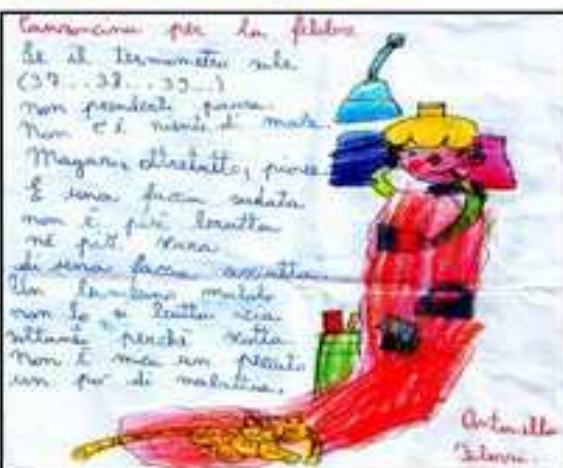 Canzoncina per la febbre
Se il termometro sale
(37...38...39...)
non prenderti paura
non c'è niente di male.
Magari, dirai
È una faccia sudata
non è più brutta
né più
di una faccia asciutta.
Un bambino malato
non lo si butta via
perché scotta
non è mica un peccato
un po' di malattia.
Antonella